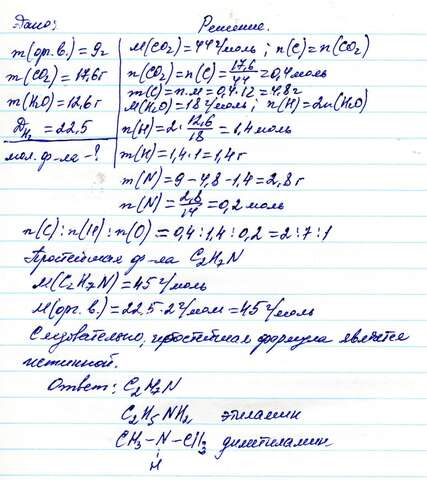 Дано:
m(орг.в.)=9г
m(CO2)=17,6г
m(H2O)=12,6г
DH2=22,5
мол.ф-ла-?
Решение.
M(CO2)=44г/моль; n(C)=n(CO2)
n(CO2)=n(C)=17,6/44=0,4моль
m(C)=n.м=0,4.12=4,8г
M(H2O)=18г/моль; n(H)=2n(H2O)
n(H)=2.12,6/18=1,4моль
m(H)=1,4.1=1,4г
m(N)=9-4,8-1,4=2,8г
n(N)=2,8/14=0,2моль
n(C):n(H):n(O)=0,4:1,4:0,2=2:7:1
Простейшая ф-ла C2H7N
M(C2H7N)=45г/моль
M(орг.в.)=22,5.2г/моль=45г/моль
Следовательно, простейшая формула является
истинной.
Ответ: C2H7N
C2H5NH2 этиламин
CH3-N-CH3 диметиламин
H